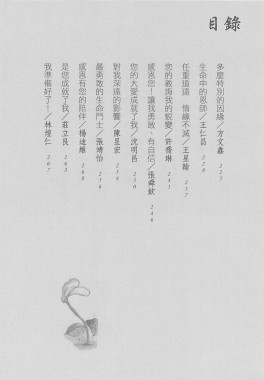 目錄
多麼特別的因緣／方文鑫 225
生命中的恩師／王仁昌 228
任重道遠 情緣不滅／王星翰 237
您的教誨我的蛻變／許喬琳 241
感恩您！讓我勇敢、有自信／張舜欽 246
您的大愛成就了我／沈明昌 250
對我深遠的影響／陳呈宏 254
最勇敢的生命鬥士／張靖怡 256
感恩有您的陪伴／楊迪雅 260
是您成就了我／莊立民 263
我準備好了！／林煜仁 267